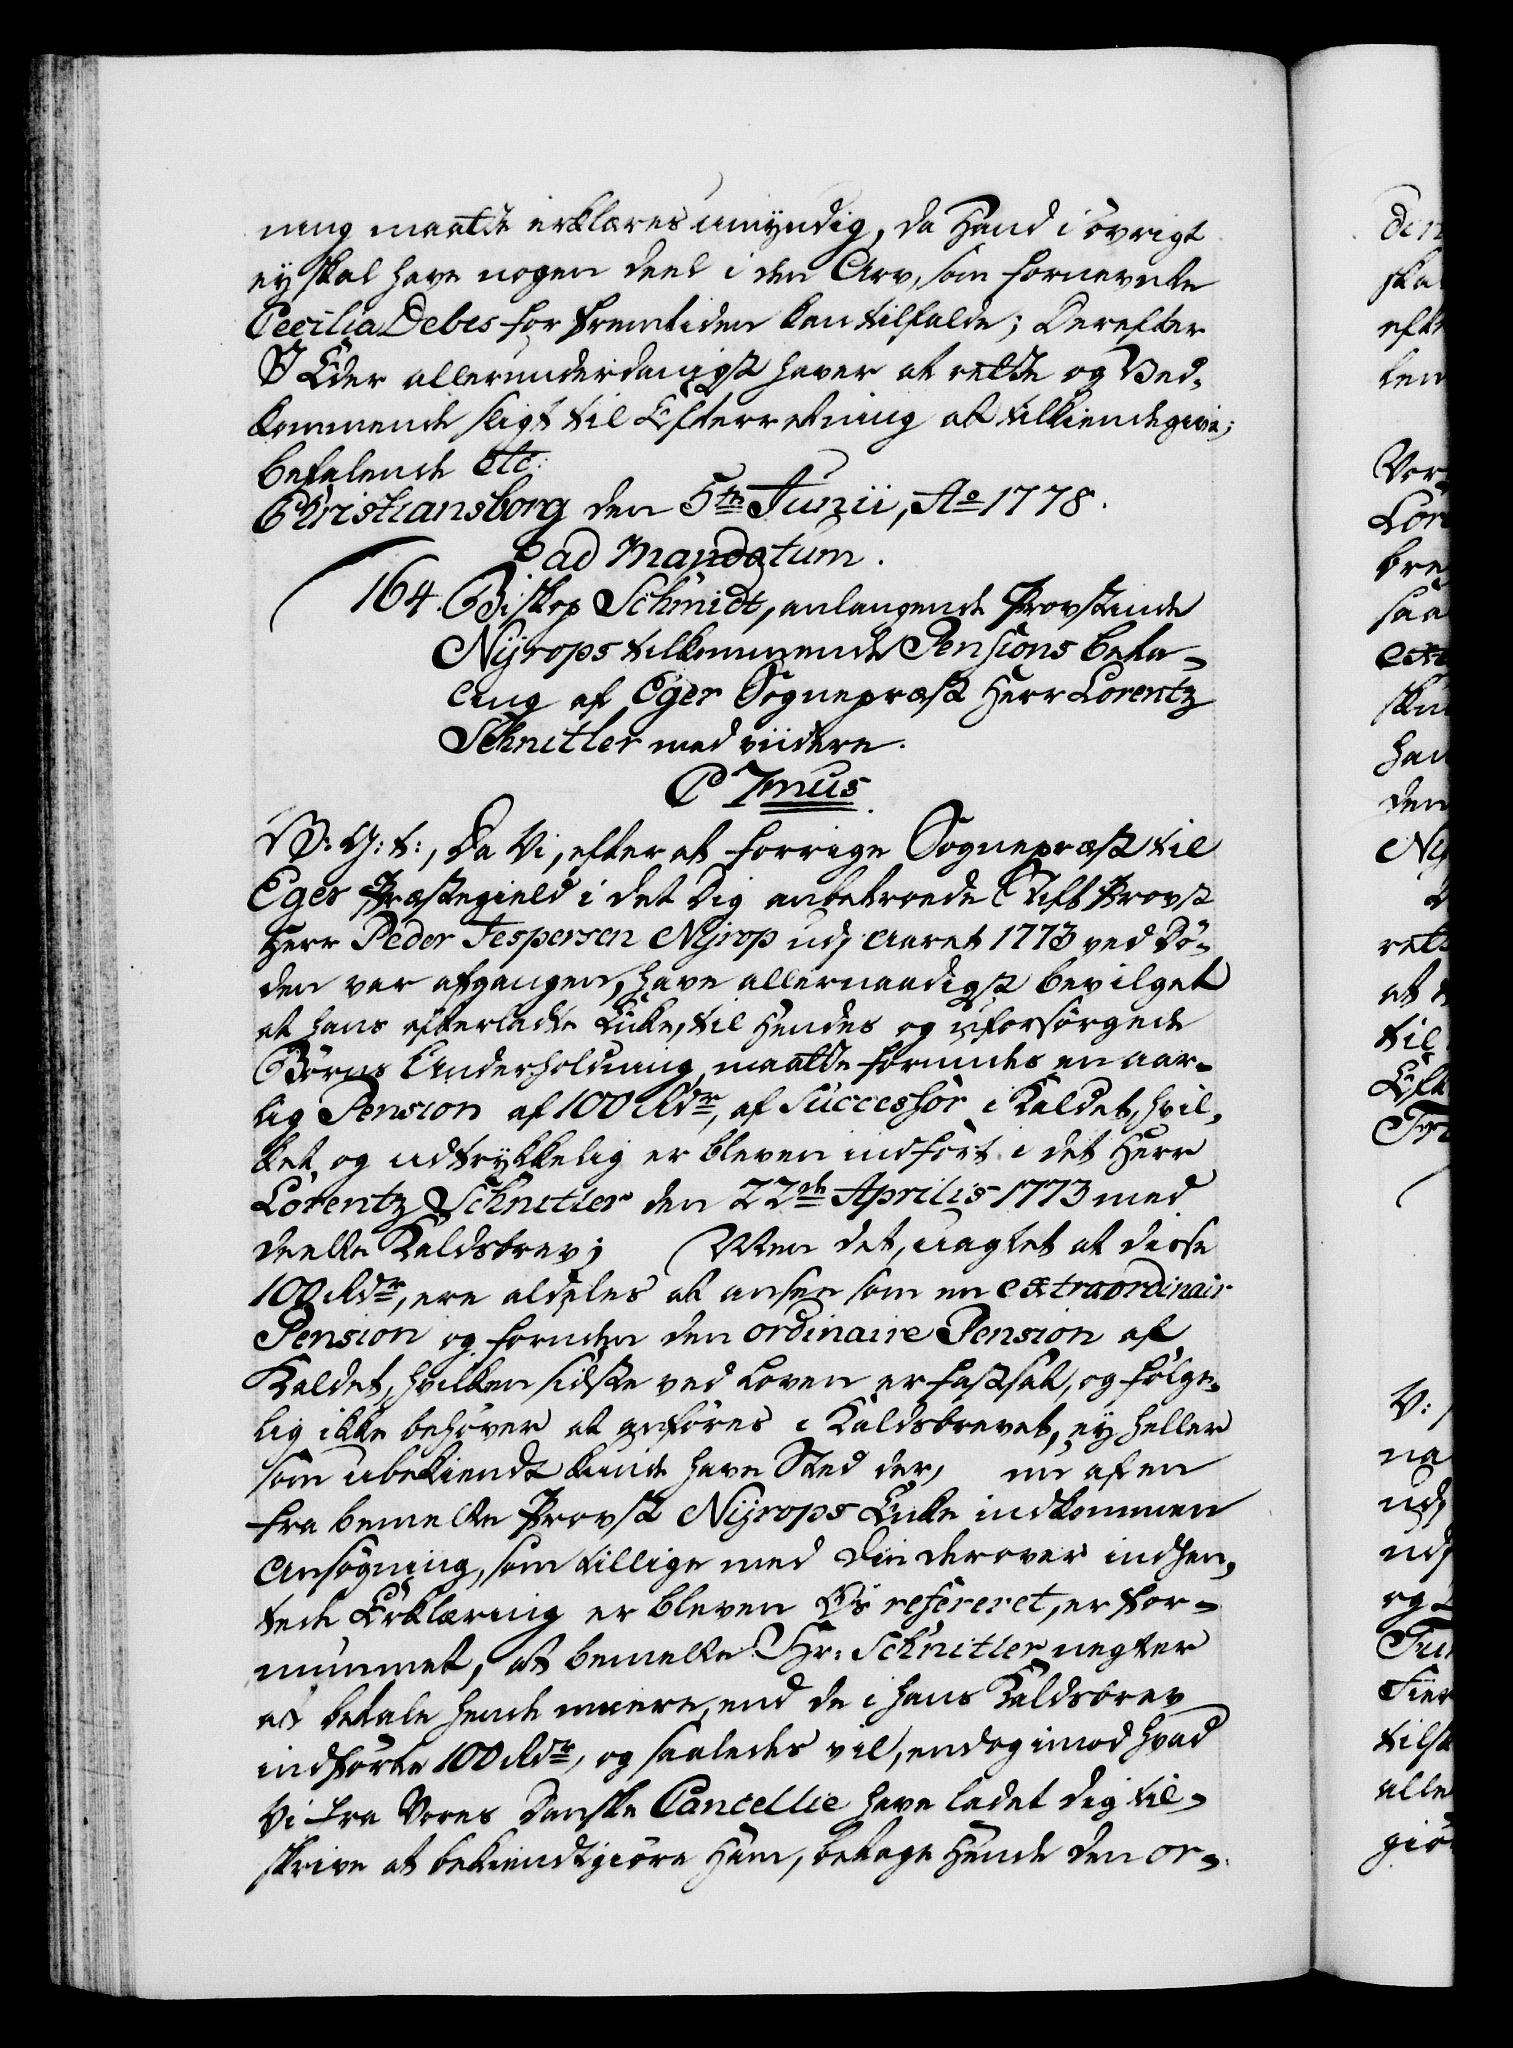 ning maatte erklæres umyndig, da Hand i övrigt
ey skal have nogen deel i den Arv, som fornevnte
Cecilia Debes for Fremtiden kan tilfalde; Derefter
I Eder allerunderdanigst haver at rette og Ved-
kommende sligt til Efterretning at tilkiendegive;
befalende etc:
Christiansborg den 5te Junii, Ao 1778.
ad Mandatum.
164. Biskop Schmidt, anlangende Provstinde
Nÿrops tilkommende Pensions beta-
ling af Eger Sognepræst Herr Lorentz
Schnitler med viidere.
C 7mus
V: G: t:, Da Vi, efter at forrige Sognepræst til
Eger Præstegield i det Dig anbetroede Stift Provst
Herr Peder Jespersen Nÿrop udj Aaret 1773 ved Dö-
den var afgangen, have allernaadigst bevilget
at hans efterladte Enke, til Hendes og uforsörgede
Börns Underholdning, maatte forundes en aar-
lig Pension af 100 Rdr, af Successor i Kaldet, hvil-
ket og udtrykkelig er bleven indfört i det Herr
Lorentz Schnitler den 22de Aprilis 1773 med
deelte Kaldsbrev; Men det, uagtet at disse
100 Rdr, ere aldeles at ansee som en extraordinair
Pension og foruden den ordinaire Pension af
Kaldet, hvilken sidste ved Loven er fastsat, og fölge-
lig ikke behöver at anföres i Kaldsbrevet, ey heller
som ubekiendt kunde have Sted der, nu af en
fra bemelte Provst Nÿrops Enke indkommen
Ansögning, som tillige med Din derover indhen-
tede Erklæring er bleven Os refereret, er for-
nummet, at bemelte Hr: Schnitler negter
at betale hende meere, end de i hans Kaldsbrev
indförte 100 Rdr, og saaledes vil, endog imod hvad
Vi fra Vores Danske Cancellie have ladet Dig til-
skrive at bekiendtgiöre Ham, betage Hende den or-